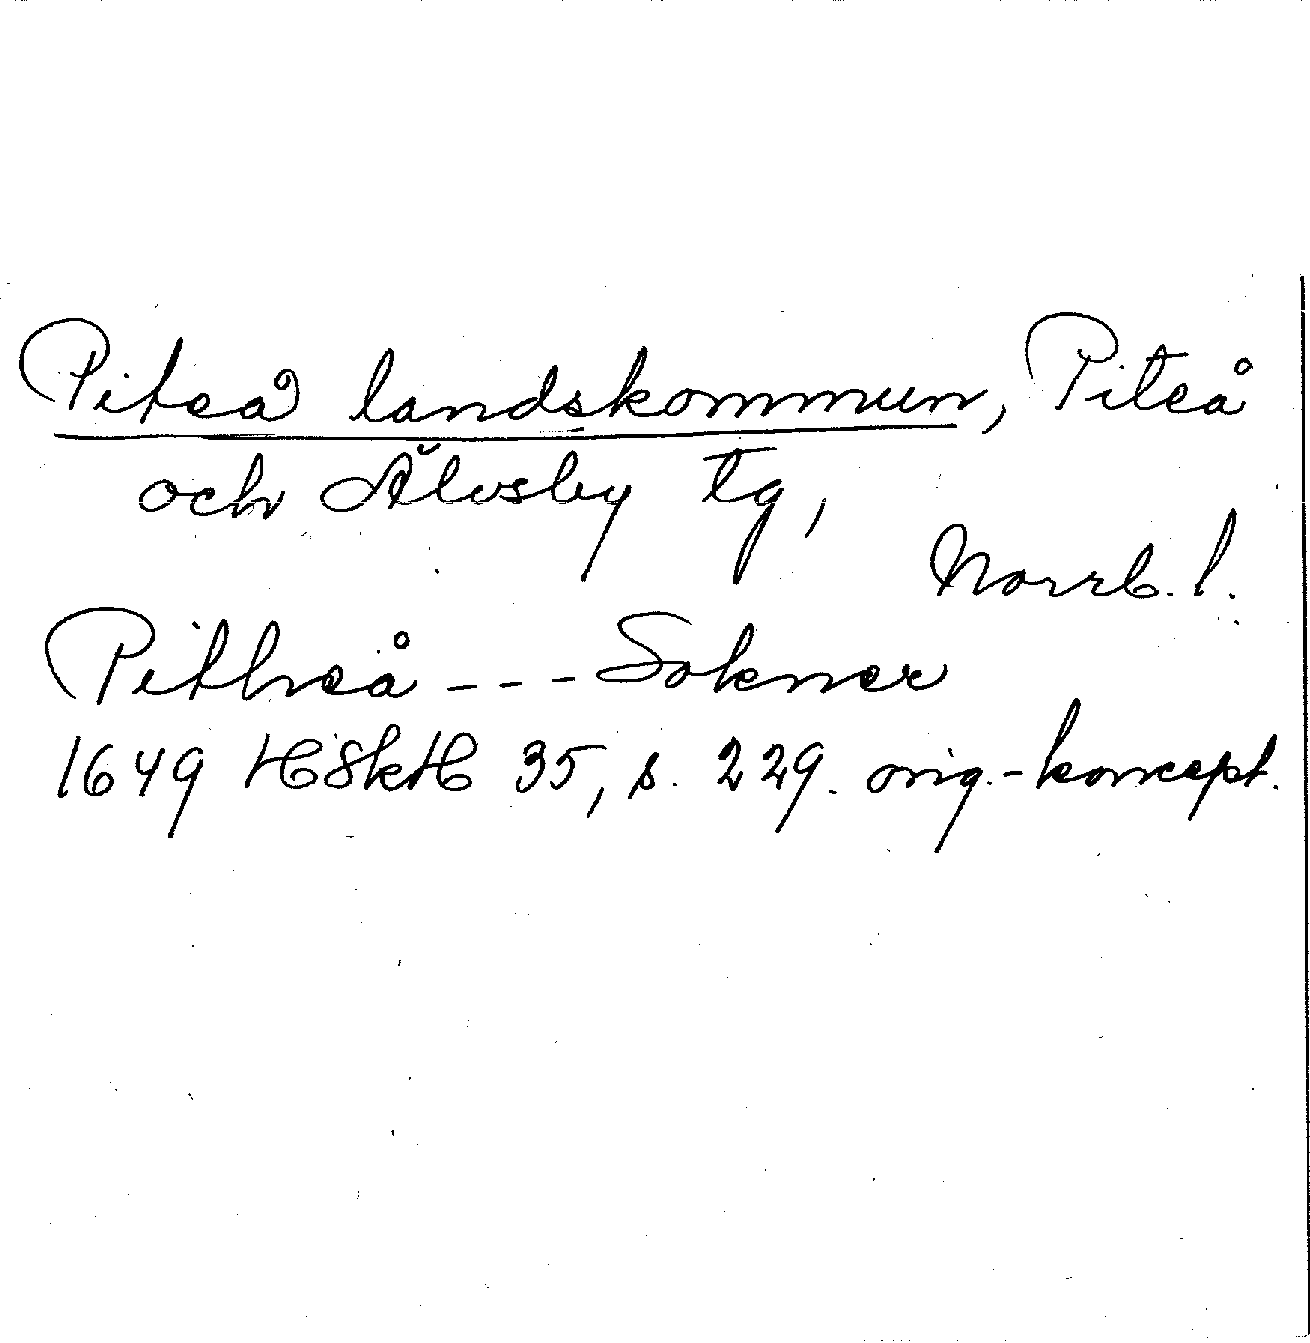 Piteå landskommun, Piteå
och Älvsby tg,
Norrb. l.
Pitheå --- Sokner
1649 HSkH 35, s. 229. orig.-koncept.